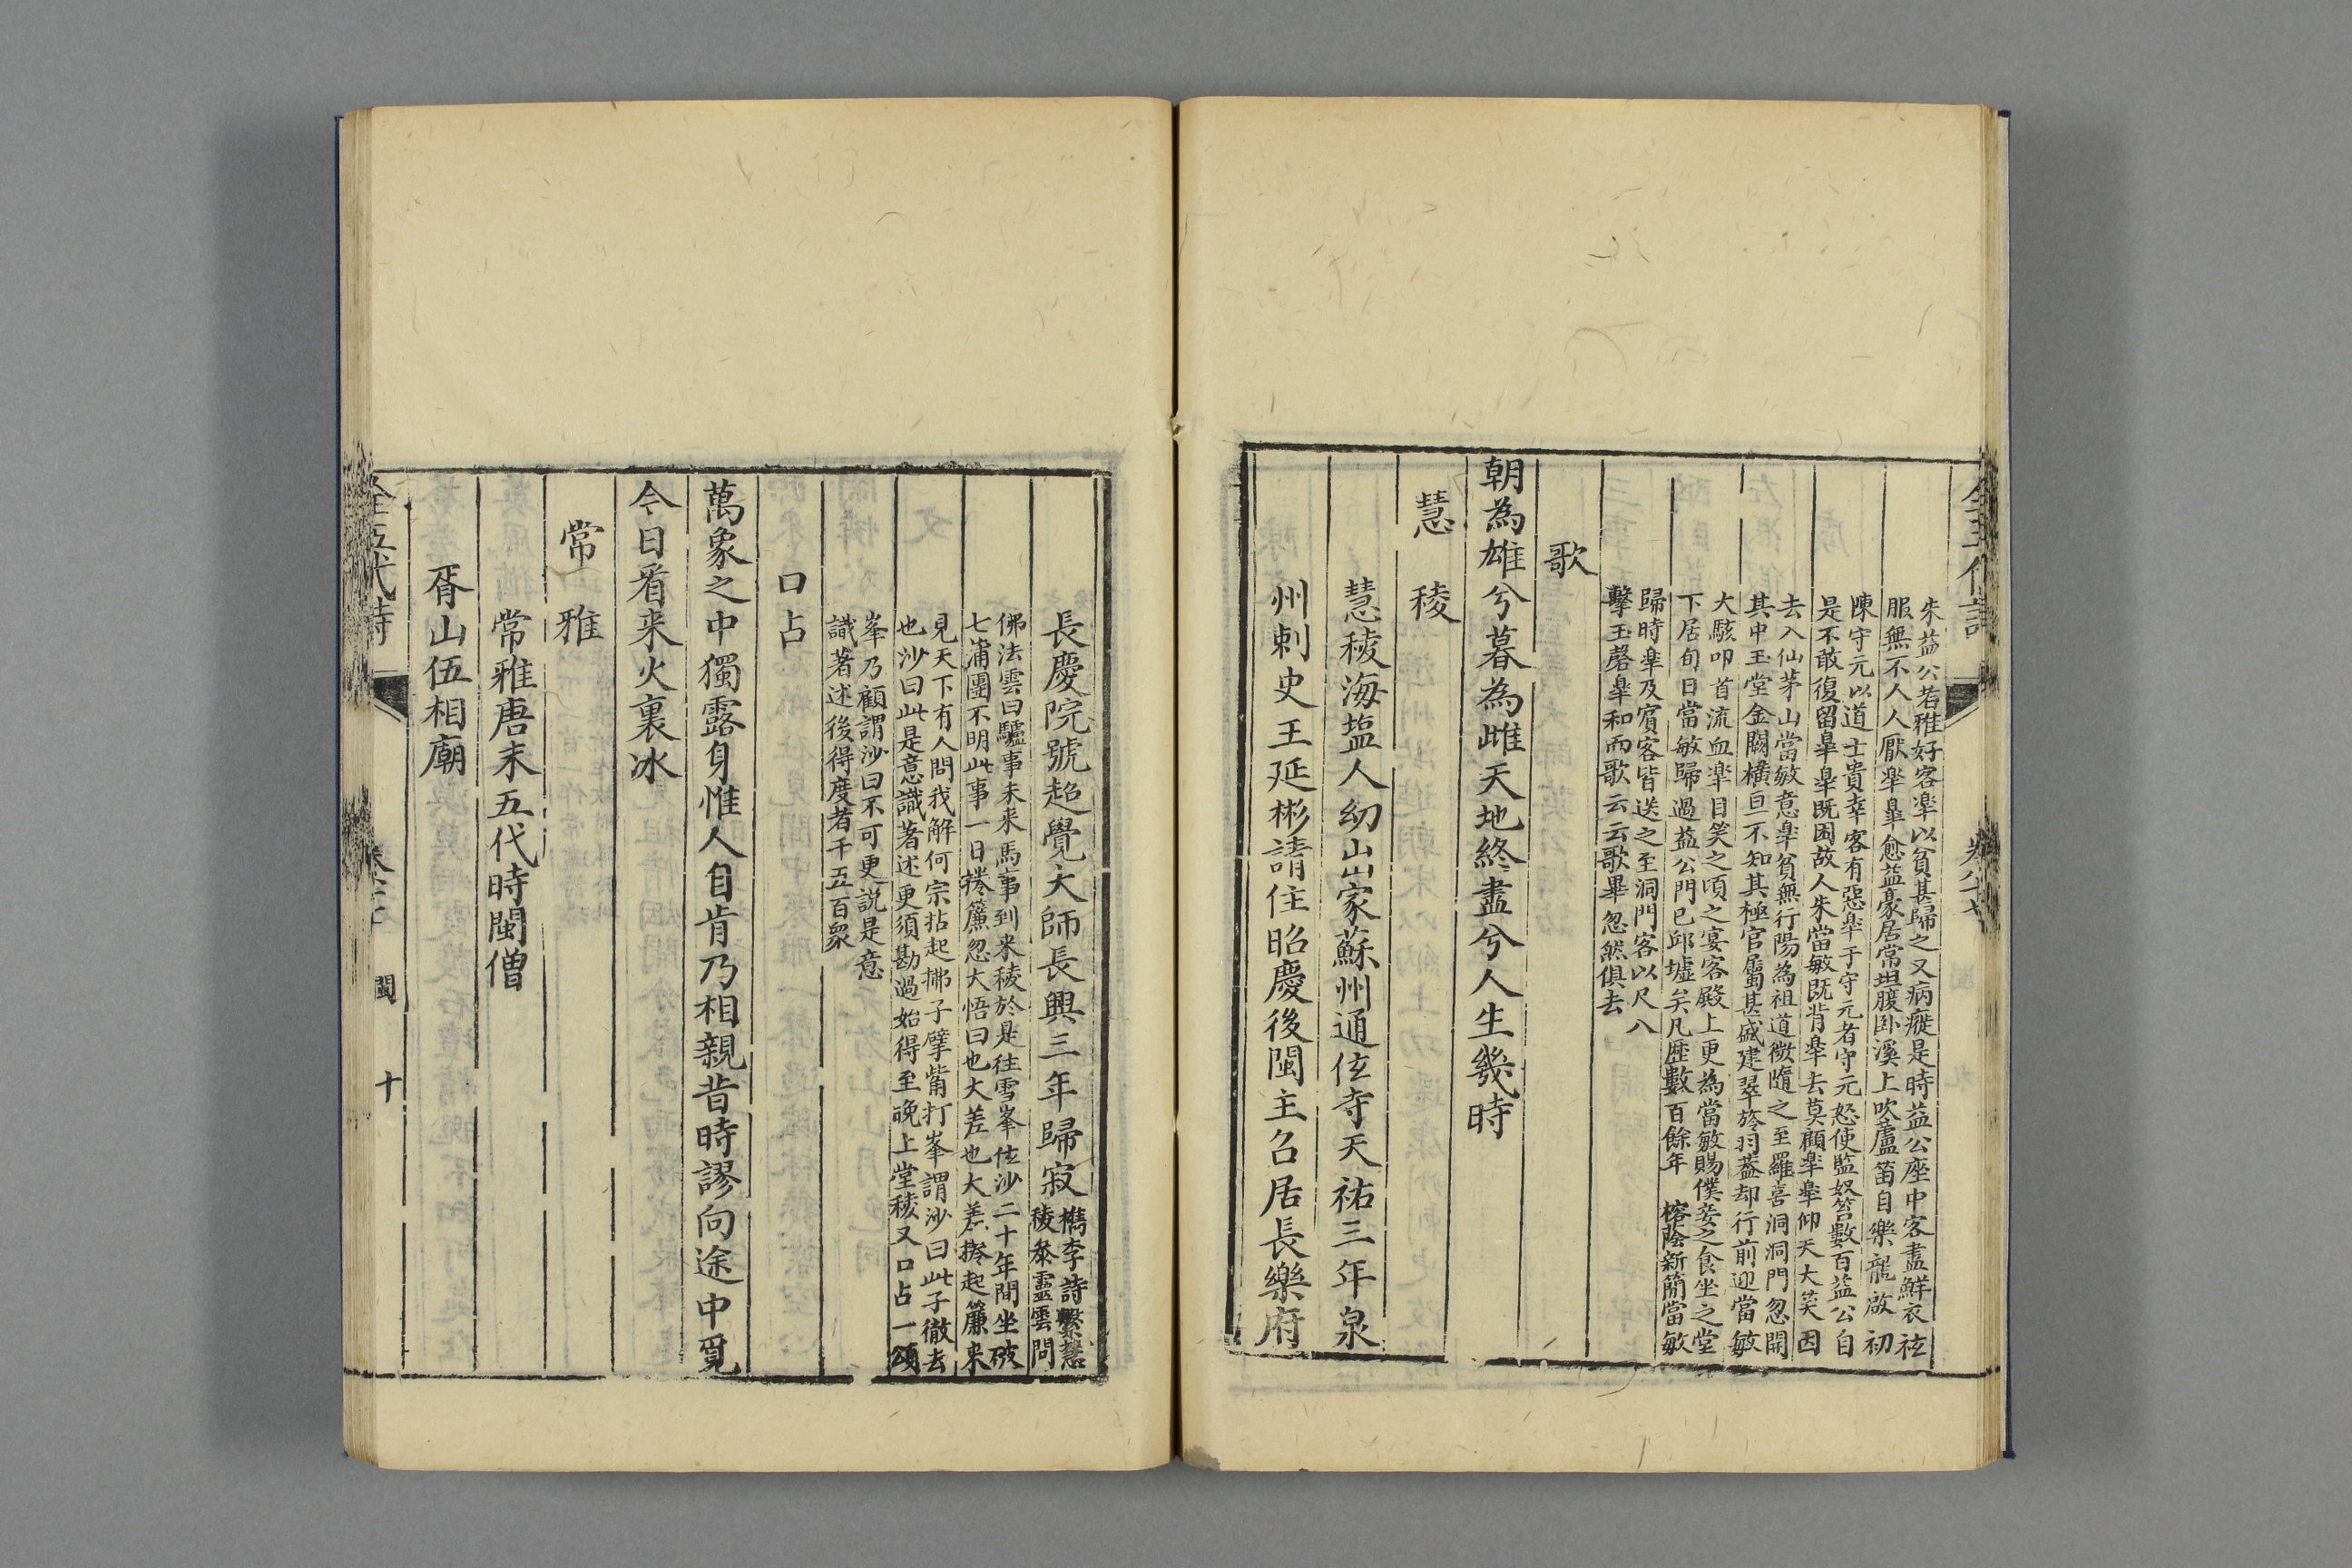 朱益公若雅好客犖以貧甚歸之又病癡是時益公座中客盡鮮衣袨
服無不人人厭犖犖愈益豪居常坦腹卧溪上吹蘆笛自樂龍啟初
陳守元以道士貴幸客有惡犖于守元者守元怒使監奴笞數百益公自
是不敢復留犖犖既困故人朱當敏既背犖去莫顧犖犖仰天大笑因
去入仙茅山當敏意犖貧無行陽為祖道微隨之至羅喜洞洞門忽開
其中玉堂金闕橫亘不知其極官屬甚盛建翠旍羽葢却行前迎當敏
大駭叩首流血犖目笑之頃之宴客殿上更為當敏賜僕妾之食坐之堂
下居旬日當敏歸過益公門已邱墟矣凡歷數百餘年 榕陰新簡當敏
歸時犖及賓客皆送之至洞門客以尺八
擊玉磬犖和而歌云云歌畢忽然俱去
歌
朝為雄兮暮為雌天地終盡兮人生幾時
慧稜
慧稜海塩人幼出家蘇州通佺寺天祐三年泉
州刺史王延彬請住昭慶後閩主召居長樂府
長慶院號超覺大師長興三年歸寂檇李詩繫慧
稜叅靈雲問
佛法雲曰驢事未来馬事到来稜於是往雪峯佺沙二十年間坐破
七蒲團不明此事一日捲簾忽大悟曰也大差也大差捲起簾来
見天下有人問我解何宗拈起拂子擘觜打峯謂沙曰此子徹去
也沙曰此是意識著述更須勘過始得至晚上堂稜又口占一頌
峯乃顧謂沙曰不可更説是意
識著述後得度者千五百衆
口占
萬象之中獨露身惟人自肯乃相親昔時謬向途中覓
今日看来火裏冰
常雅
常雅唐末五代時閩僧
胥山伍相廟
全五代詩
閩
十